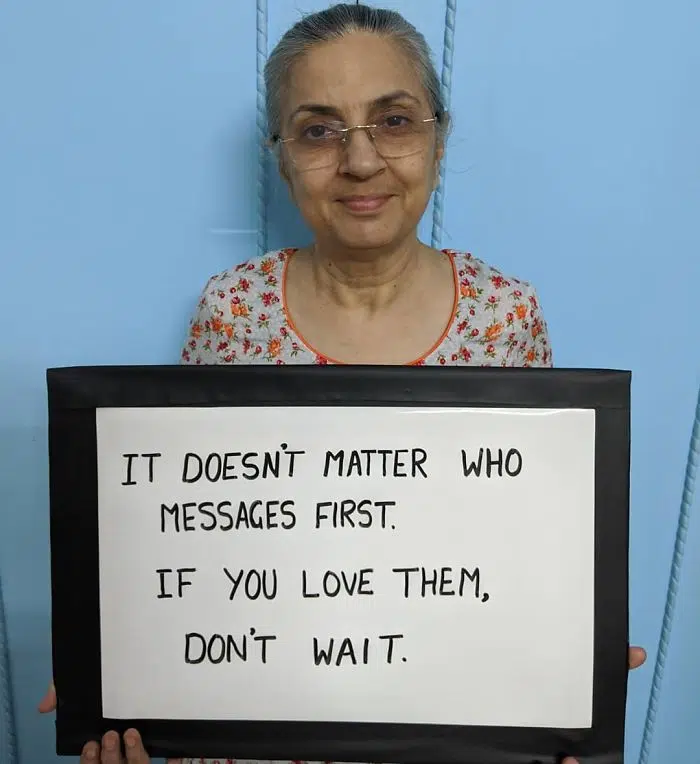 IT DOESN'T MATTER WHO
MESSAGES FIRST.
IF YOU LOVE THEM,
DON'T WAIT.